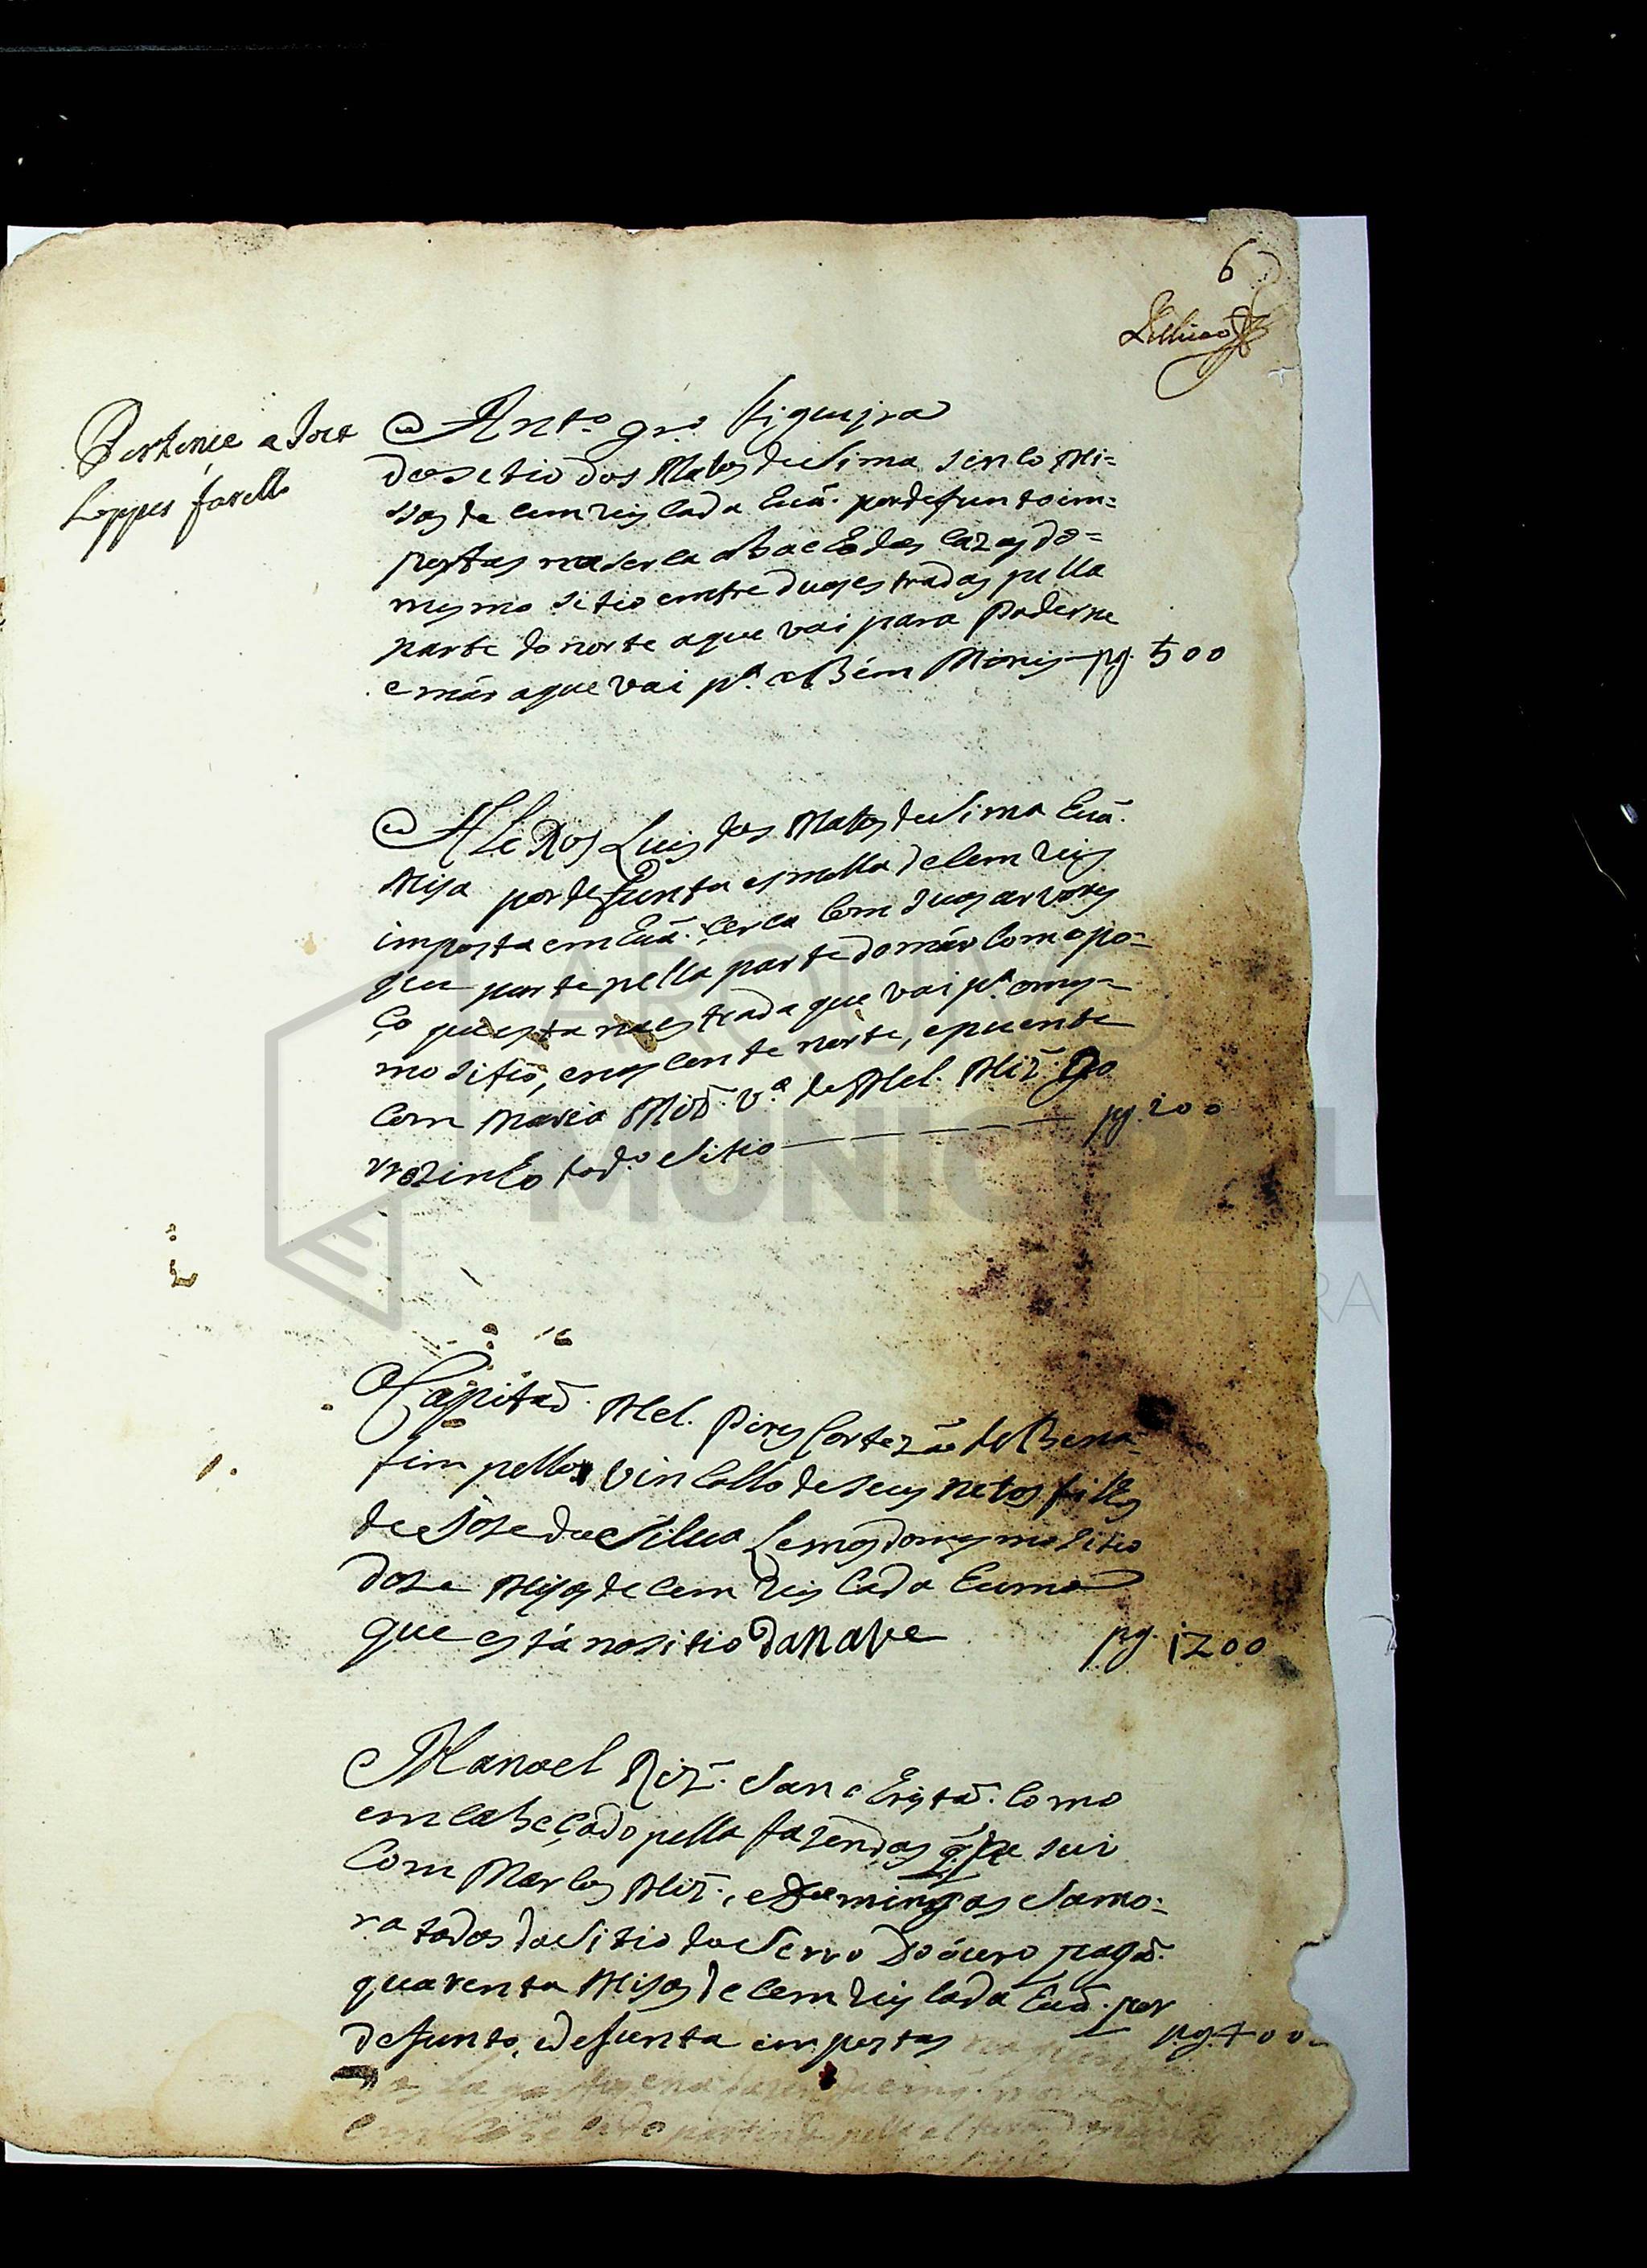 6
Pertence a Joze
Loppes farello
Antº grº figueira
do sitio dos Matos de sima sinco Mi=
sas de cem reis cada huã. por defunto im=
postas na serca abacho das cazas do=
mesmo sitio emtre duas estradas pella
parte do norte a que vai para Paderne
e már a que vai pª. Bém Moris pg. 500
Luis dos Matos de sima huã.
Misa por defunta esmolla de cem reis
imposta em huã. serca com suas arvores
que parte pella parte do már com o po=
ço que esta na estrada que vai pª. o mes=
mo sitio, e nascente norte, e puente
com Maria Miz̃. vª de Mel. Miz̃. do
vezinho todº sitio pg. 100
O Capitaõ. Mel. Pires Cortezaõ de Bena=
fim pello vincollo de seus netos filhos
de Joze da Silva Lemos do mesmo sitio
doze Misas de cem reis cada huma
que está no sitio da nave pg. 1200
Manoel Roiz̃. Sanchristaõ. como
emcabeçado pella fazendas q̃ pesui
com Marcos Miz̃., e Domingos Samo=
ra todos do sitio do Serro do óuro pagaõ.
quarenta Misas de cem reis cada huã. por
defunto, e defunta impostas pg. 400